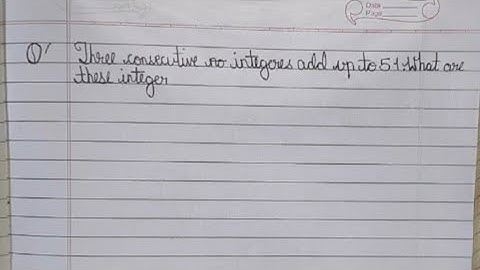 Data
Page
Q' Three consecutive no integores add up to 51. What are
these integer